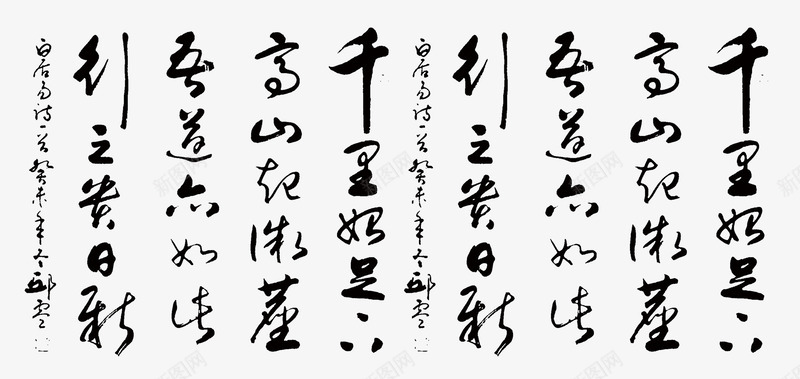 千里始足下
高山起微塵
吾道亦如此
行之貴日新
白居易诗一首癸未年冬
千里始足下
高山起微塵
吾道亦如此
行之貴日新
白居易诗一首癸未年冬